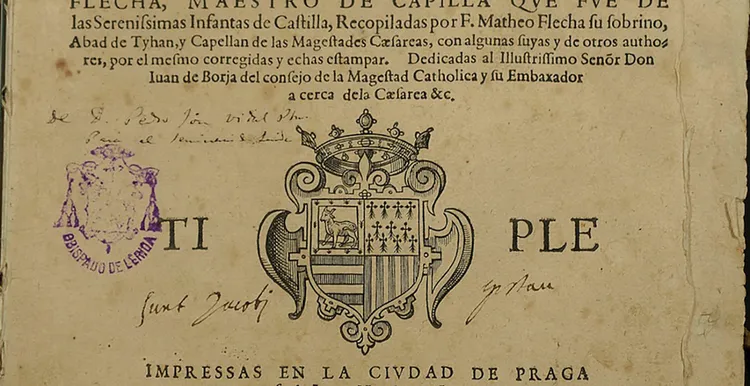 FLECHA, MAESTRO DE CAPILLA QVE FVE DE
las Serenissimas Infantas de Castilla, Recopiladas por F. Matheo Flecha su sobrino,
Abad de Tyhan, y Capellan de las Magestades Cæsareas, con algunas suyas y de otros autho-
res, por el mesmo corregidas y echas estampar. Dedicadas al Illustrissimo Senõr Don
Iuan de Borja del consejo de la Magestad Catholica y su Embaxador
a cerca dela Cæsarea &c.
De D. Pedro Jon Vidal
Para el
TI PLE
OBISPADO DE LERIDA
sunt Jacobi
IMPRESSAS EN LA CIVDAD DE PRAGA